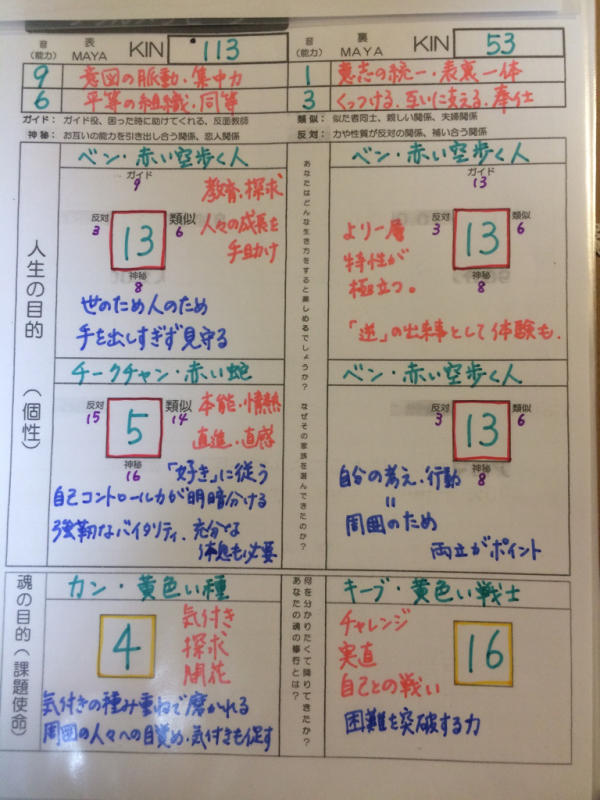 音(能力) 表 MAYA KIN 113
音(能力) 裏 MAYA KIN 53
9 意図の脈動・集中力
1 意志の統一・表裏一体
6 平等の組織・同等
3 くっつける。互いに支える。奉仕
ガイド:ガイド役、困った時に助けてくれる、反面教師
類似:似た者同士、親しい関係、夫婦関係
神秘:お互いの能力を引き出し合う関係、恋人関係
反対:力や性質が反対の関係、補い合う関係
人生の目的(個性)
ベン・赤い空歩く人
ガイド
9
反対
3
13
類似
6
神秘
8
教育・探求
人々の成長を
手助け
世のため人のため
手を出しすぎず見守る
あなたはどんな生き方をすると楽しめるでしょうか? なぜその家族を選んできたのか?
ベン・赤い空歩く人
ガイド
13
反対
3
13
類似
6
神秘
8
より一層
特性が
極立つ。
「逆」の出来事として体験も。
チークチャン・赤い蛇
反対
15
5
類似
14
神秘
16
本能・情熱
直進・直感
「好き」に従う
自己コントロール力が明暗分ける
強靭なバイタリティ、充分な
休息も必要
ベン・赤い空歩く人
反対
3
13
類似
6
神秘
8
自分の考え・行動
=
周囲のため
両立がポイント
魂の目的(課題使命)
カン・黄色い種
4
気付き
探求
開花
気付きの積み重ねで磨かれる
周囲の人々への目覚め・気付きも促す
何を分かりたくて降りてきたか?
あなたの魂の修行とは?
キーブ・黄色い戦士
チャレンジ
実直
自己との戦い
16
困難を突破する力